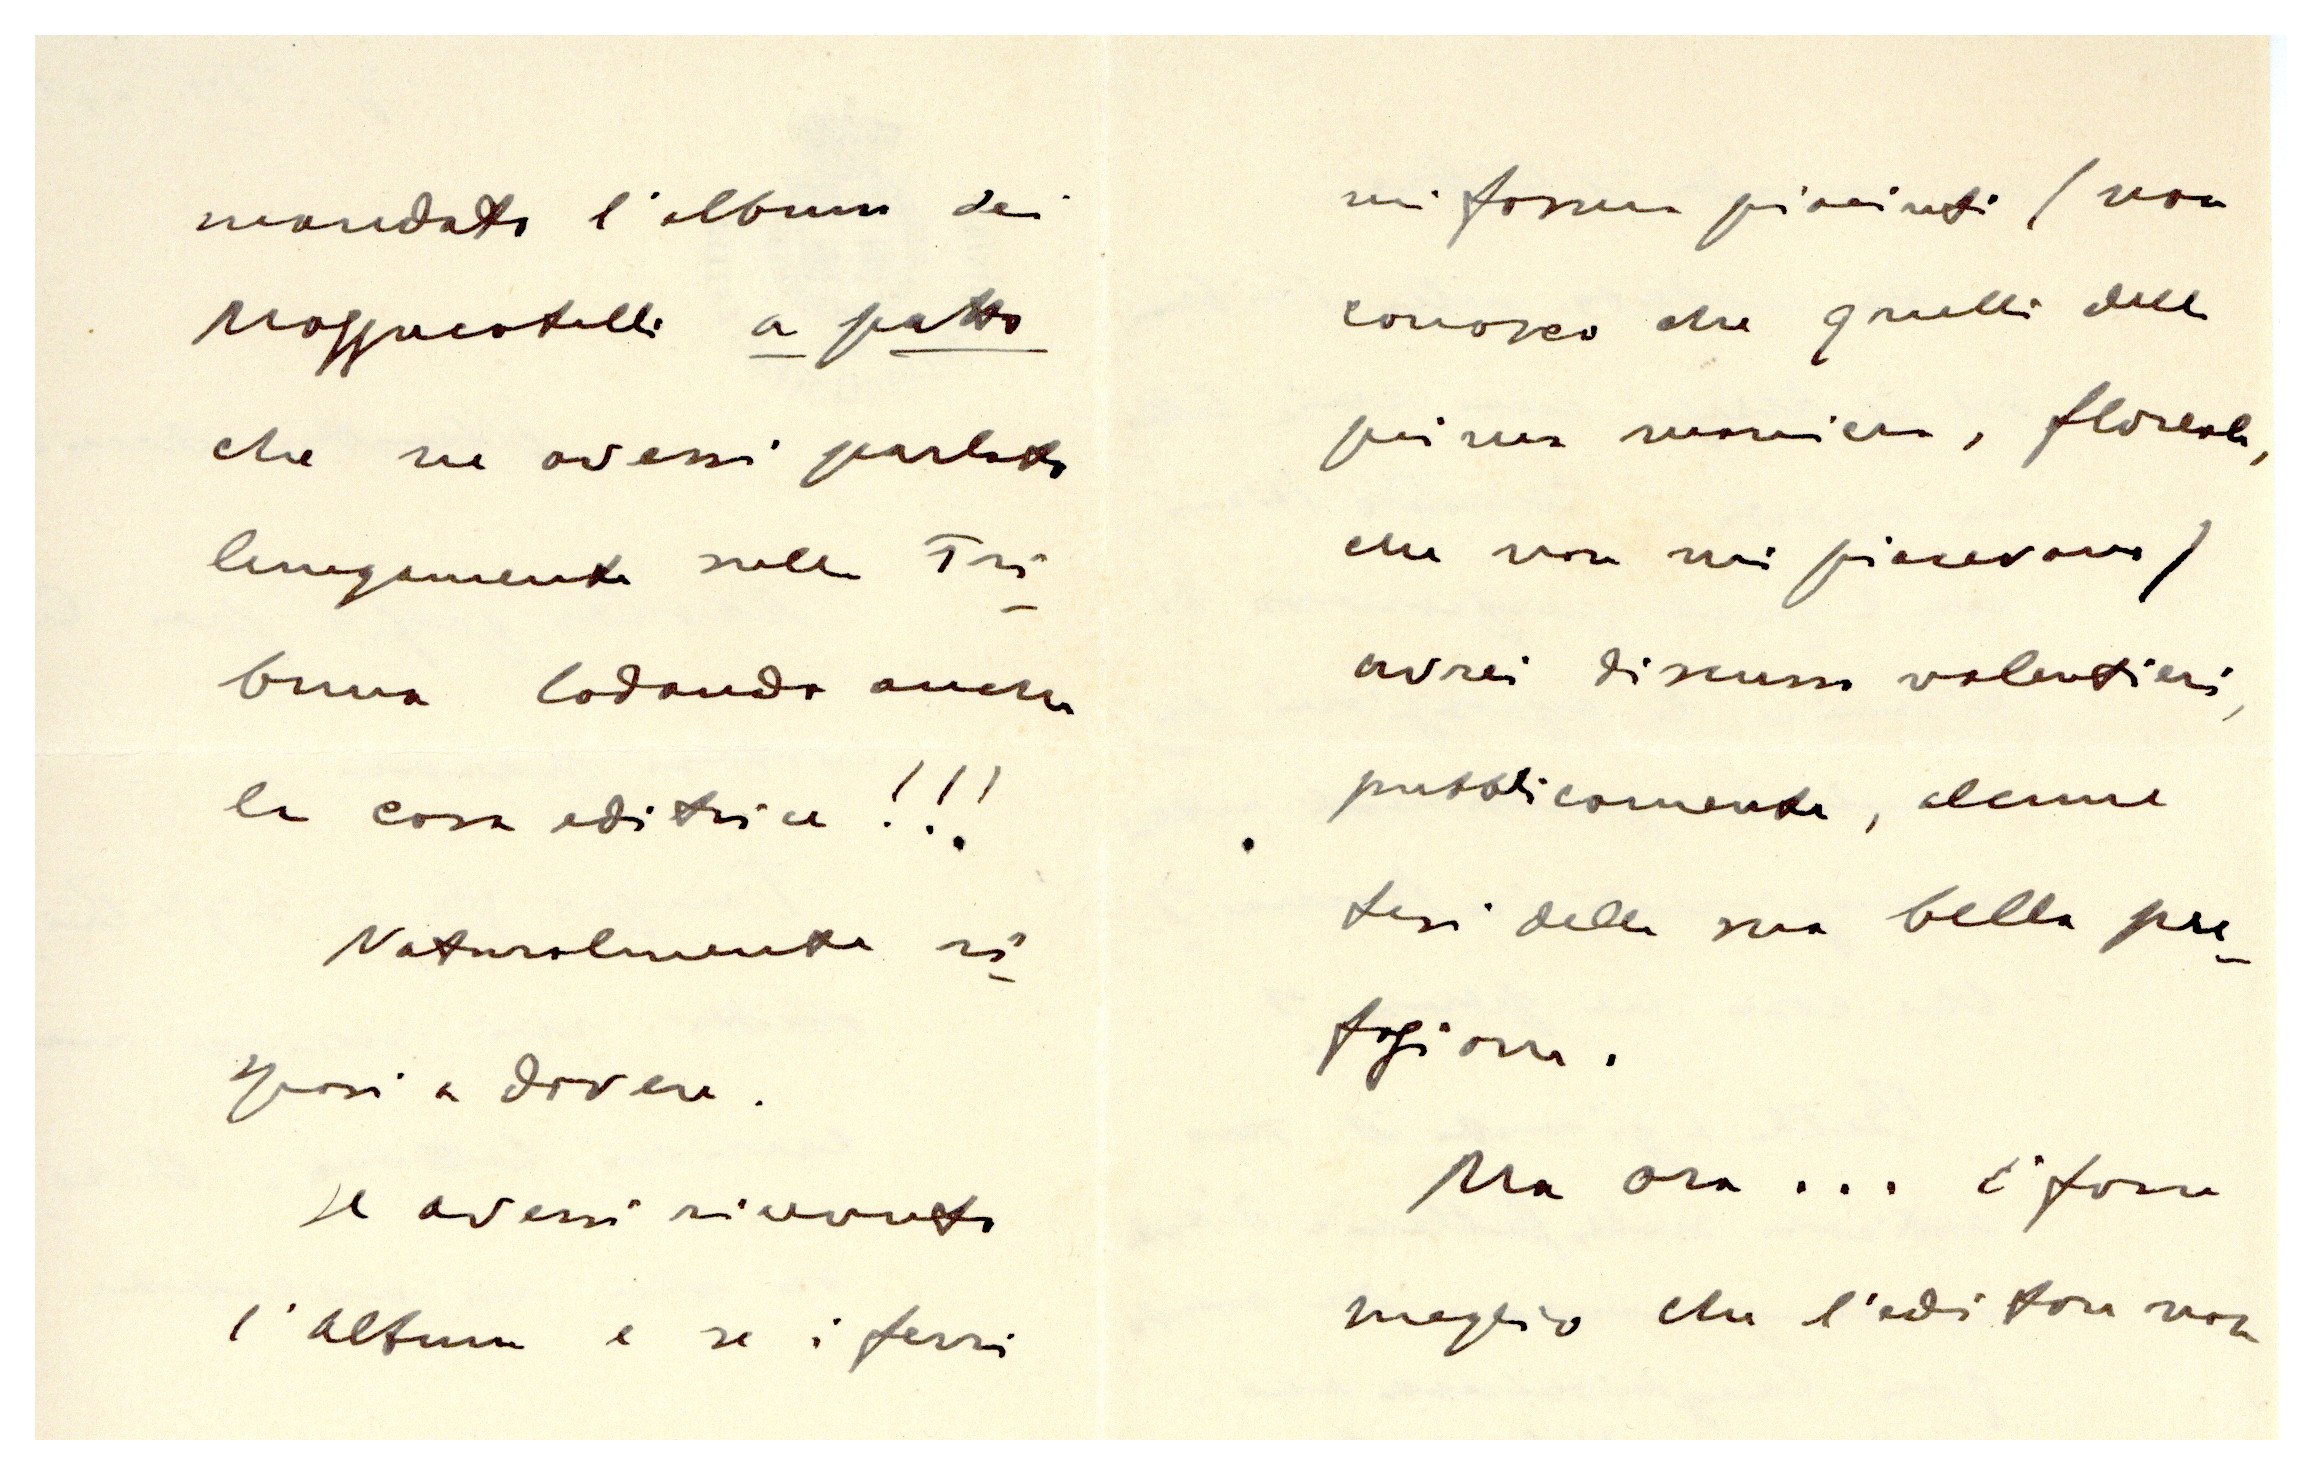 mandato l'album dei
Mazzucotelli a patto
che ne avessi parlato
lungamente sulla Tri-
buna lodando anche
la casa editrice!!!
Naturalmente ri-
sposi a dovere.
Se avessi ricevuto
l'album e se i ferri
mi fossero piaciuti (non
conosco che quelli della
prima maniera, floreale,
che non mi piacevano)
avrei discusso volentieri,
pubblicamente, alcune
tesi della sua bella pre-
fazione.
Ma ora... è forse
meglio che l'editore non